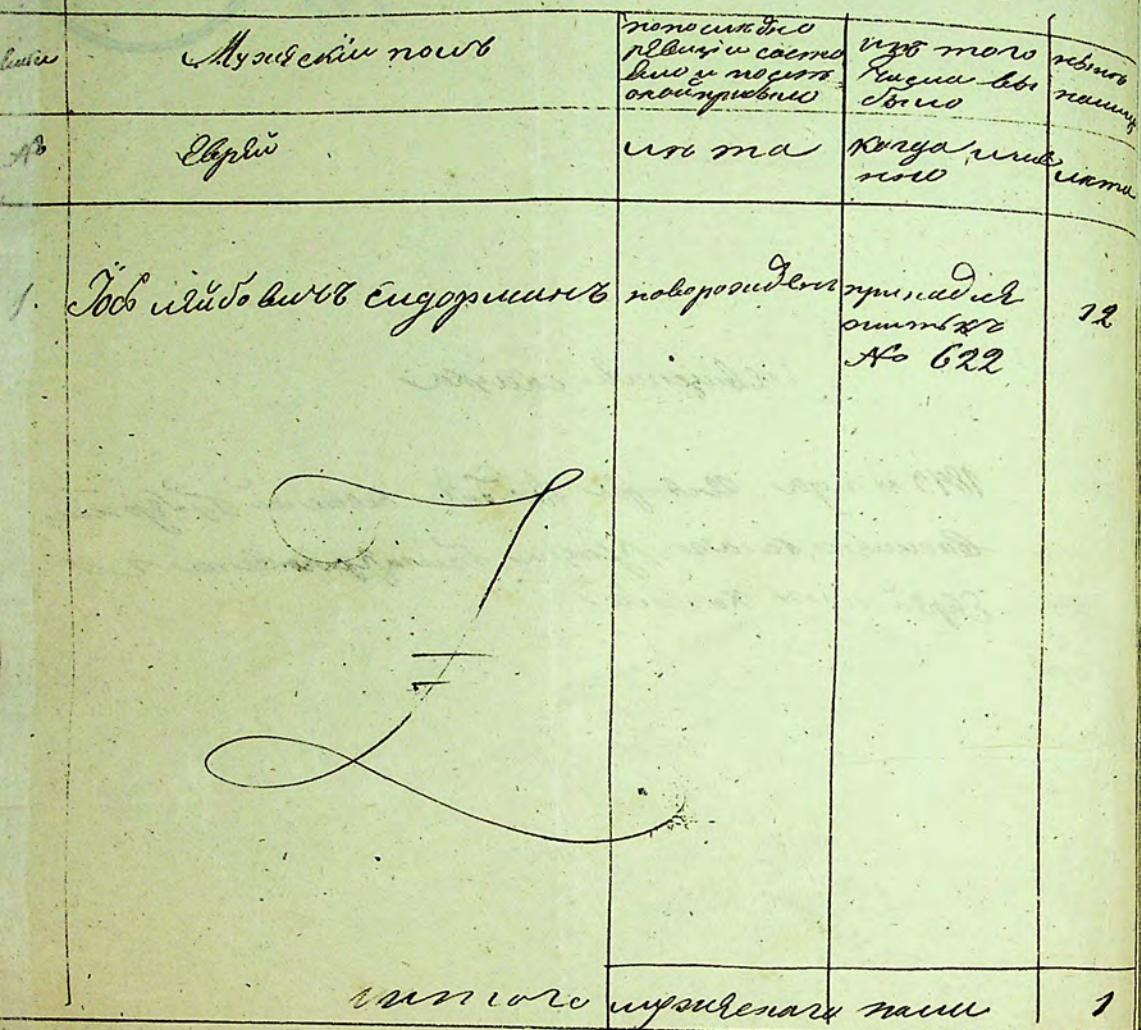 Мужескiй полъ
пополиѣднo
ревизiи состо
яло и послѣ
оной прибыло
изъ того
числа вы
было
нынѣ
Еврей
лѣта
когда имен
но
лѣта
1. Iосъ лейбовичъ сидорманъ новорожденъ принадлѣ 12
житъ къ
№ 622
итого мужескаго пола 1